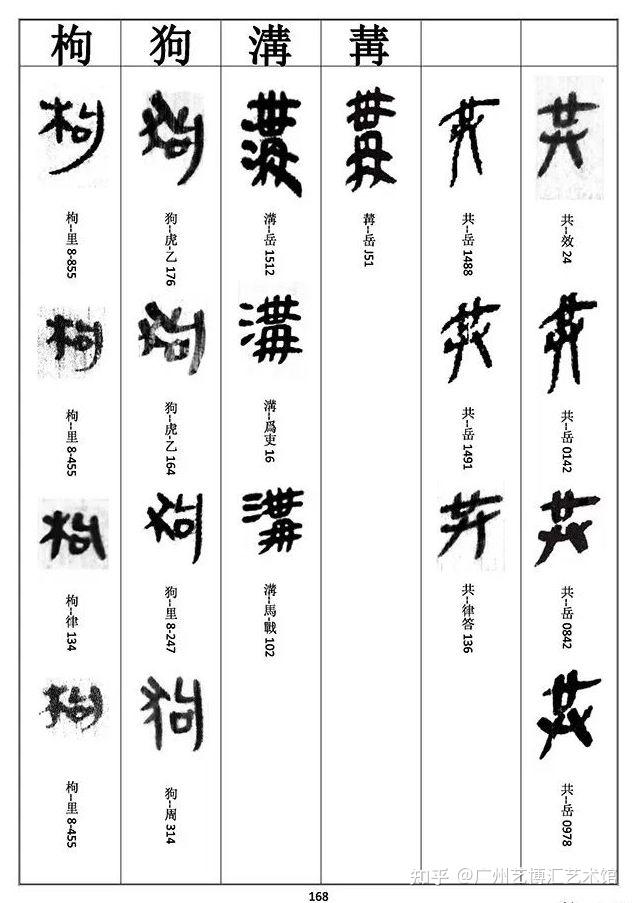 枸 狗 溝 冓
枸 狗 溝 冓 共 共
枸-里 8-855
狗-虎-乙 176
溝-岳 1512
冓-岳 J51
共-岳 1488
共-效 24
枸 狗 溝 共 共
枸-里 8-455
狗-虎-乙 164
溝-爲吏 16
共-岳 1491
共-岳 0142
枸 狗 溝 共 共
枸-律 134
狗-里 8-247
溝-馬-戰 102
共-律答 136
共-岳 0842
枸 狗 共
枸-里 8-455
狗-周 314
共-岳 0978
知乎 @广州艺博汇艺术馆
168